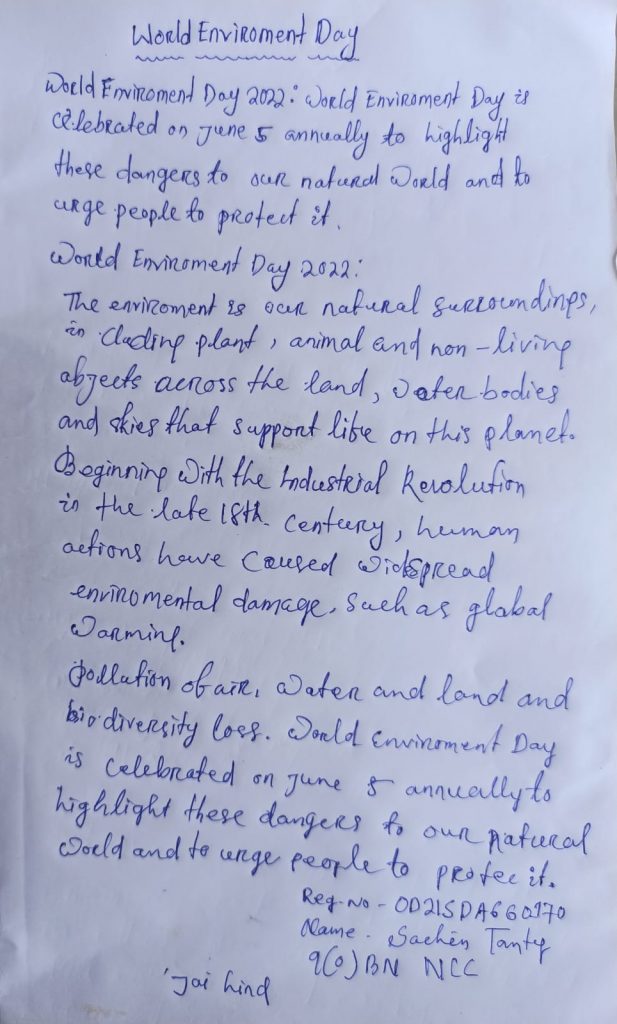 World Enviroment Day
World Enviroment Day 2022: World Enviroment Day is
Celebrated on June 5 annually to highlight
these dangers to our natural World and to
urge people to protect it.
World Enviroment Day 2022:
The enviroment is our natural surroundings,
in clading plant, animal and non-living
abjects across the land, water bodies
and skies that support life on this planet.
Beginning With the Industrial Revolution
in the late 18th century, human
actions have caused widspread
enviromental damage, such as global
Warming.
pollution of air, Water and land and
bio-diversity loss. World Enviroment Day
is celebrated on June 5 annually to
highlight these dangers to our natural
World and to urge people to protec it.
Reg.No - OD21SDA660170
Name. Sachin Tanty
9(O) BN NCC
'Jai hind